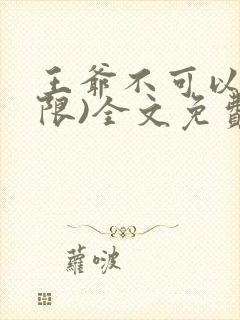 王爷不可以
限)全文免費
蘿啵